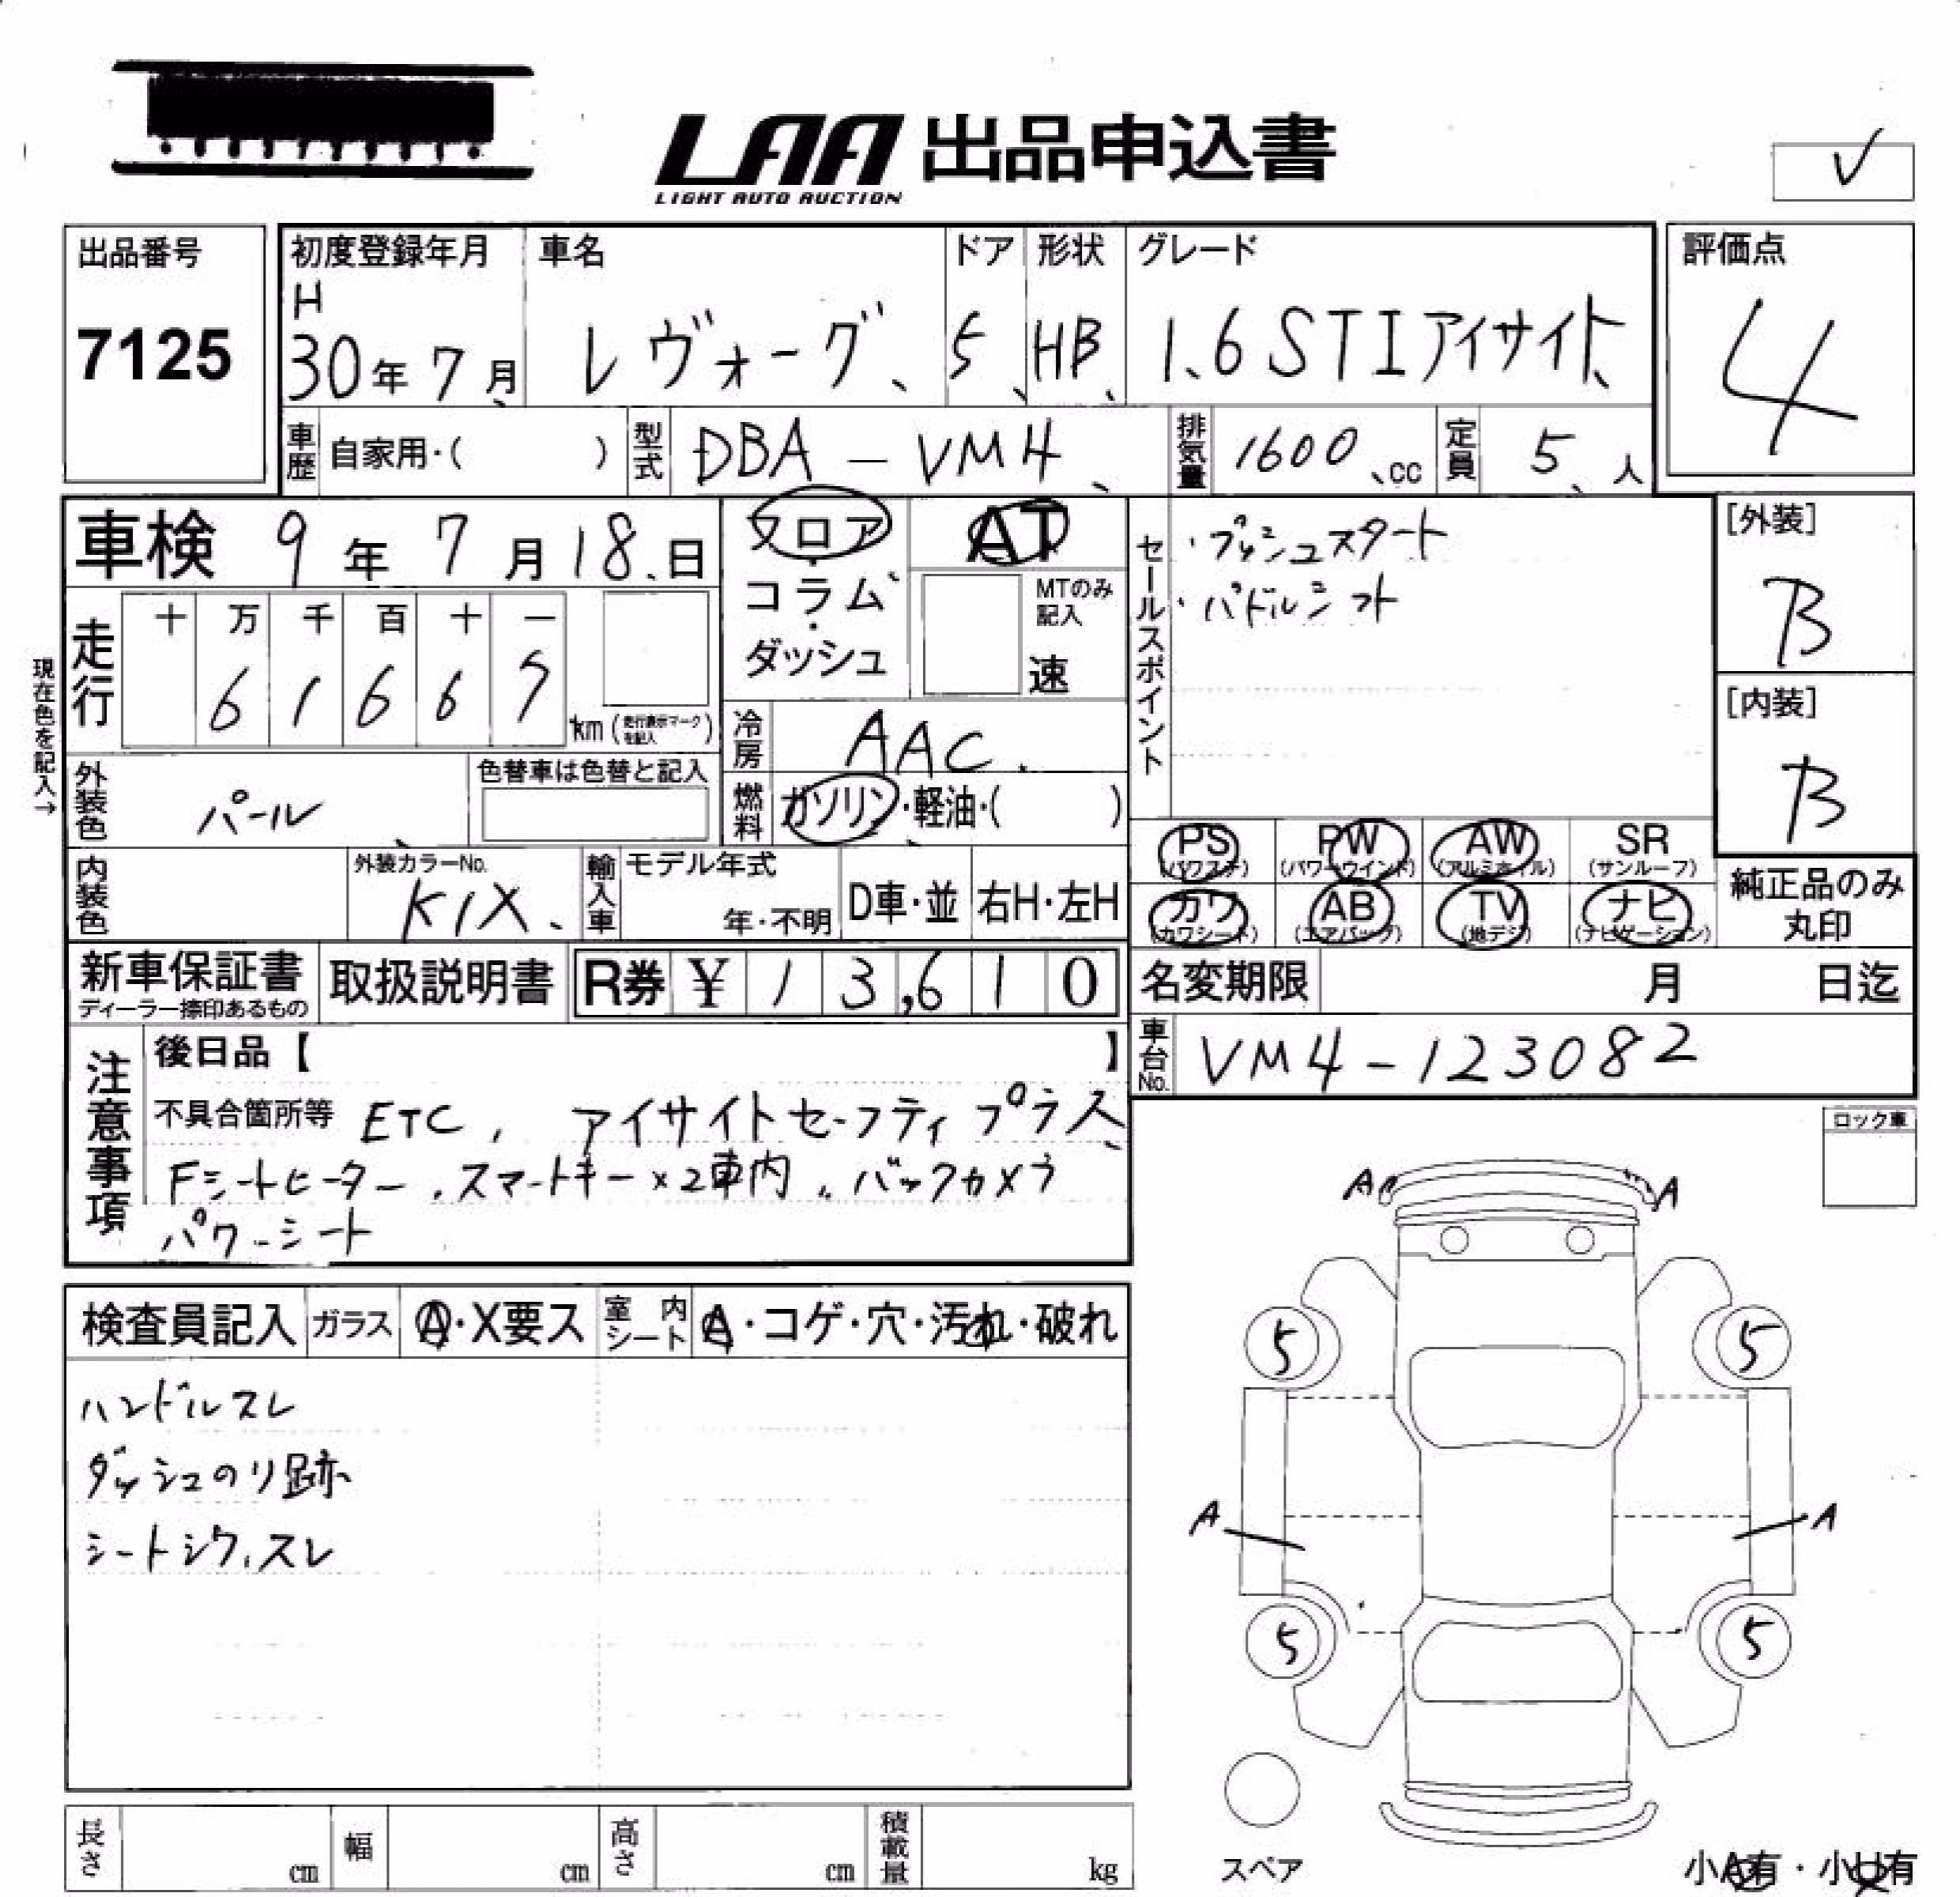 LAA 出品申込書
LIGHT AUTO AUCTION
✓
出品番号
7125
初度登録年月
H
30年 7月
車名
レヴォーグ
ドア
5
形状
HB
グレード
1.6 STI アイサイト
評価点
4
車歴 自家用・( )
型式 DBA - VM4
排気量 1600 cc
定員 5 人
車検 9年 7月 18日
フロア・コラム・ダッシュ
AT
MTのみ記入
速
セールスポイント
・プッシュスタート
・パドルシフト
[外装]
B
[内装]
B
現在色を記入→
走行
十 万 千 百 十 一
6 1 6 6 7
km (走行表示マークを記入)
冷房 AAC
燃料 ガソリン・軽油・( )
外装色 パール
色替車は色替と記入
内装色
外装カラーNo.
K1X
輸入車
モデル年式
年・不明
D車・並
右H・左H
PS (パワステ)
PW (パワーウインド)
AW (アルミホイル)
SR (サンルーフ)
カワ (カワシート)
AB (エアバック)
TV (地デジ)
ナビ (ナビゲーション)
純正品のみ丸印
新車保証書
ディーラー捺印あるもの
取扱説明書
R券 ¥ 1 3,6 1 0
名変期限 月 日迄
車台No. VM4-123082
注意事項
後日品【 】
不具合箇所等 ETC, アイサイトセーフティプラス
Fシートヒーター、スマートキー×2車内、バックカメラ
パワーシート
ロック車
検査員記入
ガラス A・X要ス
室内シート A・コゲ・穴・汚れ・破れ
ハンドルスレ
ダッシュのり跡
シートシワ、スレ
A A
5 5
A A
5 5
スペア
長さ cm
幅 cm
高さ cm
積載量 kg
小A有・小U有